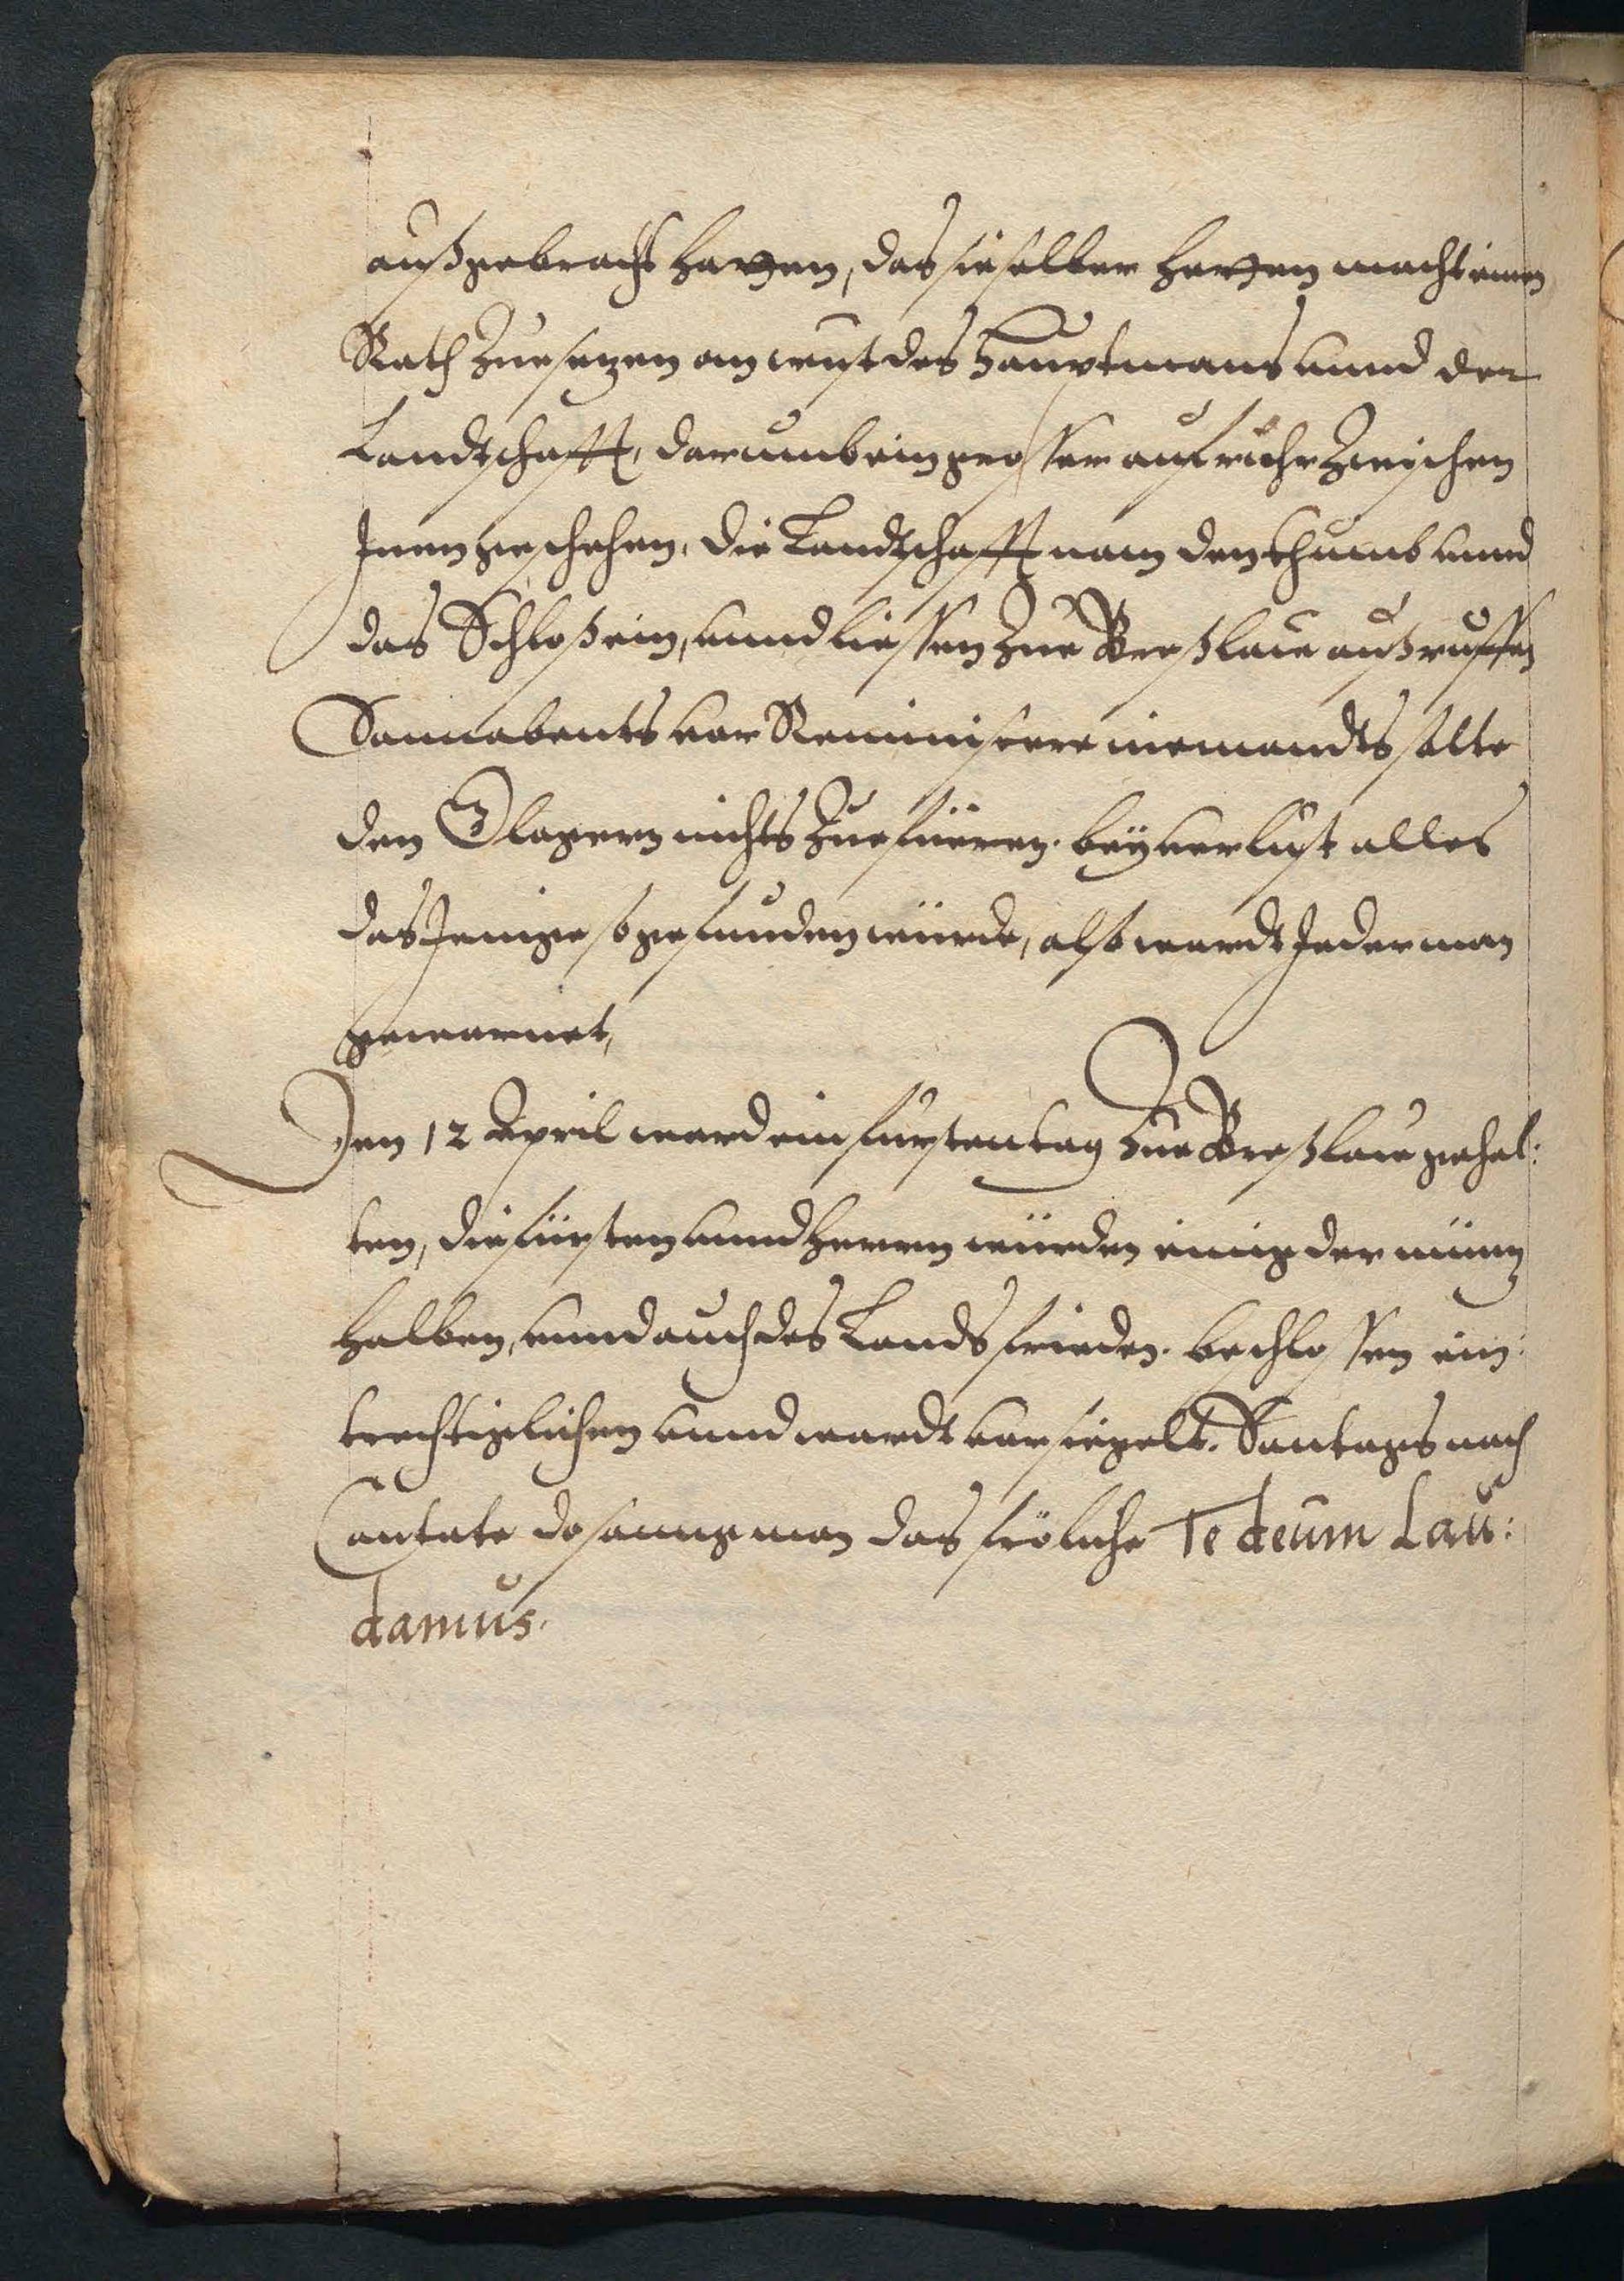 außgebracht hatten, das sie selber hetten macht einen
Rath zue setzen on wust des Hauptmans unnd der
Landtschafft, darumb ein grosser aufruhr zwischen
Inen geschehen, die Landtschafft nam den Thumb unnd
das Schloß ein, unnd liessen zue Breßlaw außruffen
Sonnabents vor Reminiscere niemandts solte
den Glogern nichts zuefüeren. bey verlust alles
das Jenige so gefunden würde, also wardt Jederman
gewarnet,
Den 12 April ward ein fürstentag zue Breßlaw gehal:
ten, die fürsten unnd Herrn würden einig der müntz
halben, unnd auch des Landsfrieden. beschlossen ein:
trechtiglichen unnd wardt versiegelt. Sontags nach
Cantate do sange man das fröliche Te deum Lau:
damus.